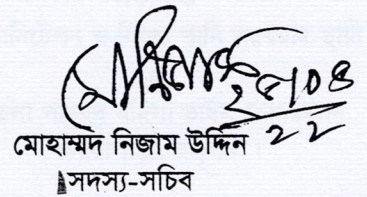 ২৫/০৪
২২
মোহাম্মদ নিজাম উদ্দিন
সদস্য-সচিব